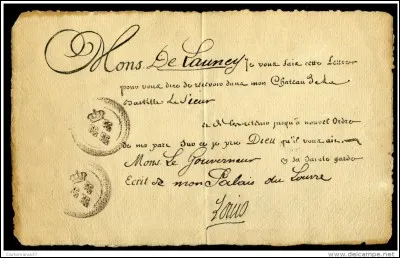 Mons. De Launey Je vous fais cette Lettre
pour vous dire de recevoir dans mon Chateau de la
Bastille Le Sieur
et de l'y retenir jusqu'à nouvel Ordre
de ma part. Sur ce je prie Dieu qu'il vous ait
Mons Le Gouverneur en sa Sainte garde
Ecrit de mon Palais du Louvre
Louis